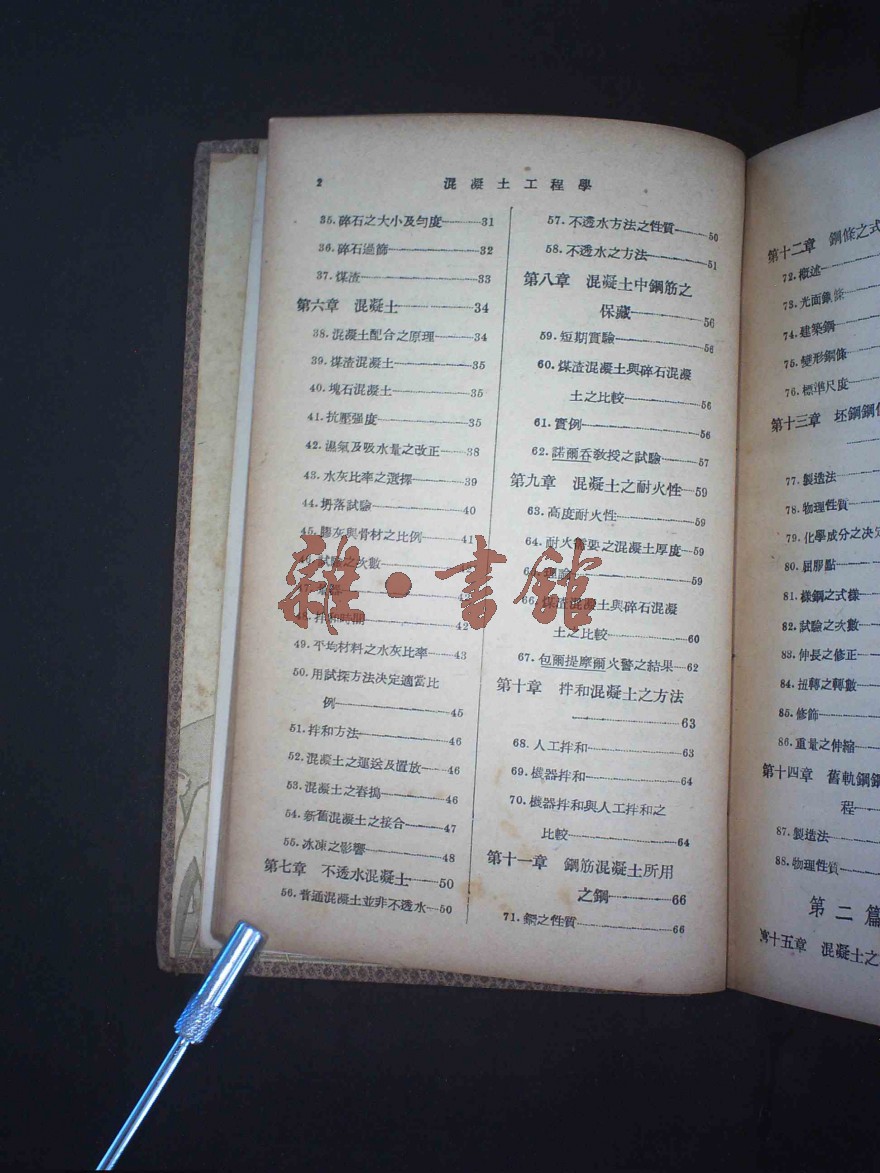 2
混凝土工程學
35.碎石之大小及勻度——31
36.碎石過篩——32
37.煤渣——33
第六章 混凝土——34
38.混凝土配合之原理——34
39.煤渣混凝土——35
40.塊石混凝土——35
41.抗壓強度——35
42.濕氣及吸水量之改正——38
43.水灰比率之選擇——39
44.坍落試驗——40
45.膠灰與骨材之比例——41
試驗之次數
48.拌和時間——42
49.平均材料之水灰比率——43
50.用試探方法決定適當比
例——45
51.拌和方法——46
52.混凝土之運送及置放——46
53.混凝土之舂搗——46
54.新舊混凝土之接合——47
55.冰凍之影響——48
第七章 不透水混凝土——50
56.普通混凝土並非不透水——50
57.不透水方法之性質——50
58.不透水之方法——51
第八章 混凝土中鋼筋之
保藏——56
59.短期實驗——56
60.煤渣混凝土與碎石混凝
土之比較——56
61.實例——56
62.諾爾吞教授之試驗——57
第九章 混凝土之耐火性——59
63.高度耐火性——59
64.耐火需要之混凝土厚度——59
理論——59
66.煤渣混凝土與碎石混凝
土之比較——60
67.包爾提摩爾火警之結果——62
第十章 拌和混凝土之方法
——63
68.人工拌和——63
69.機器拌和——64
70.機器拌和與人工拌和之
比較——64
第十一章 鋼筋混凝土所用
之鋼——66
71.鋼之性質——66
第十二章 鋼條之式
72.概述
73.光面鋼條
74.建築鋼
75.變形鋼條
76.標準尺度
第十三章 坯鋼鋼
77.製造法
78.物理性質
79.化學成分之決定
80.屈膠點
81.樣鋼之式樣
82.試驗之次數
83.伸長之修正
84.扭轉之轉數
85.修飾
86.重量之伸縮
第十四章 舊軌鋼鋼
程
87.製造法
88.物理性質
第二篇
十五章 混凝土之
雜·書館